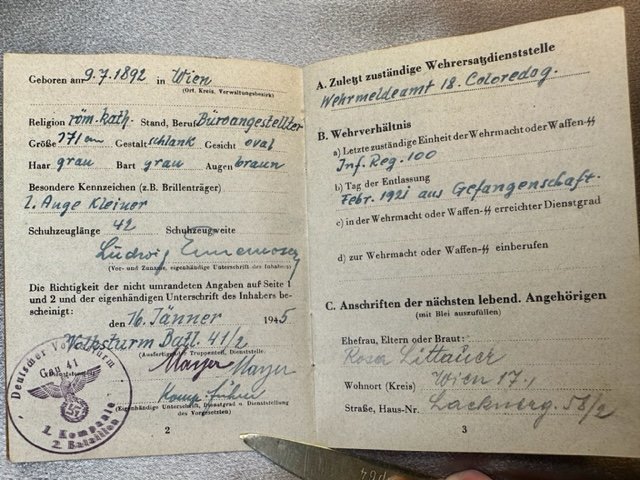 Geboren am 9.7.1892 in Wien
(Ort, Kreis, Verwaltungsbezirk)
Religion röm. kath. Stand, Beruf Büroangestellter
Größe 171 cm Gestalt schlank Gesicht oval
Haar grau Bart grau Augen braun
Besondere Kennzeichen (z.B. Brillenträger)
l. Auge Kleiner
Schuhzeuglänge 42 Schuhzeugweite
Ludwig
(Vor- und Zuname, eigenhändige Unterschrift des Inhabers)
Die Richtigkeit der nicht umrandeten Angaben auf Seite 1
und 2 und der eigenhändigen Unterschrift des Inhabers be-
scheinigt:
den 16. Jänner 1945
Volksturm Batl. 41/2
(Ausfertigender Truppenteil, Dienststelle.
Mayer Mayer
Komp. führer
(Eigenhändige Unterschrift, Dienstgrad u. Dienststellung
des Vorgesetzten)
Deutscher Volkssturm
Gau 41
1. Kompanie
2. Bataillon
2
A. Zuletzt zuständige Wehrersatzdienststelle
Wehrmeldeamt 18. Coloredog.
B. Wehrverhältnis
a) Letzte zuständige Einheit der Wehrmacht oder Waffen-SS
Inf. Reg. 100
b) Tag der Entlassung
Febr. 1921 aus Gefangenschaft.
c) in der Wehrmacht oder Waffen-SS erreichter Dienstgrad
d) zur Wehrmacht oder Waffen-SS einberufen
C. Anschriften der nächsten lebend. Angehörigen
(mit Blei auszufüllen)
Ehefrau, Eltern oder Braut:
Rosa Littauer
Wohnort (Kreis) Wien 17.,
Straße, Haus-Nr. Lacknerg. 58/2
3